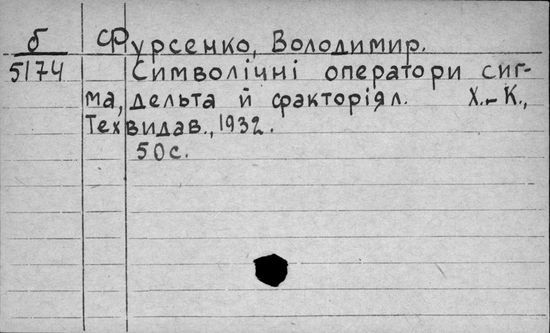 б Фурсенко, Володимир.
5174 Символічні оператори сиг-
ма, дельта й факторіял. Х.-К.,
Техвидав., 1932.
50с.